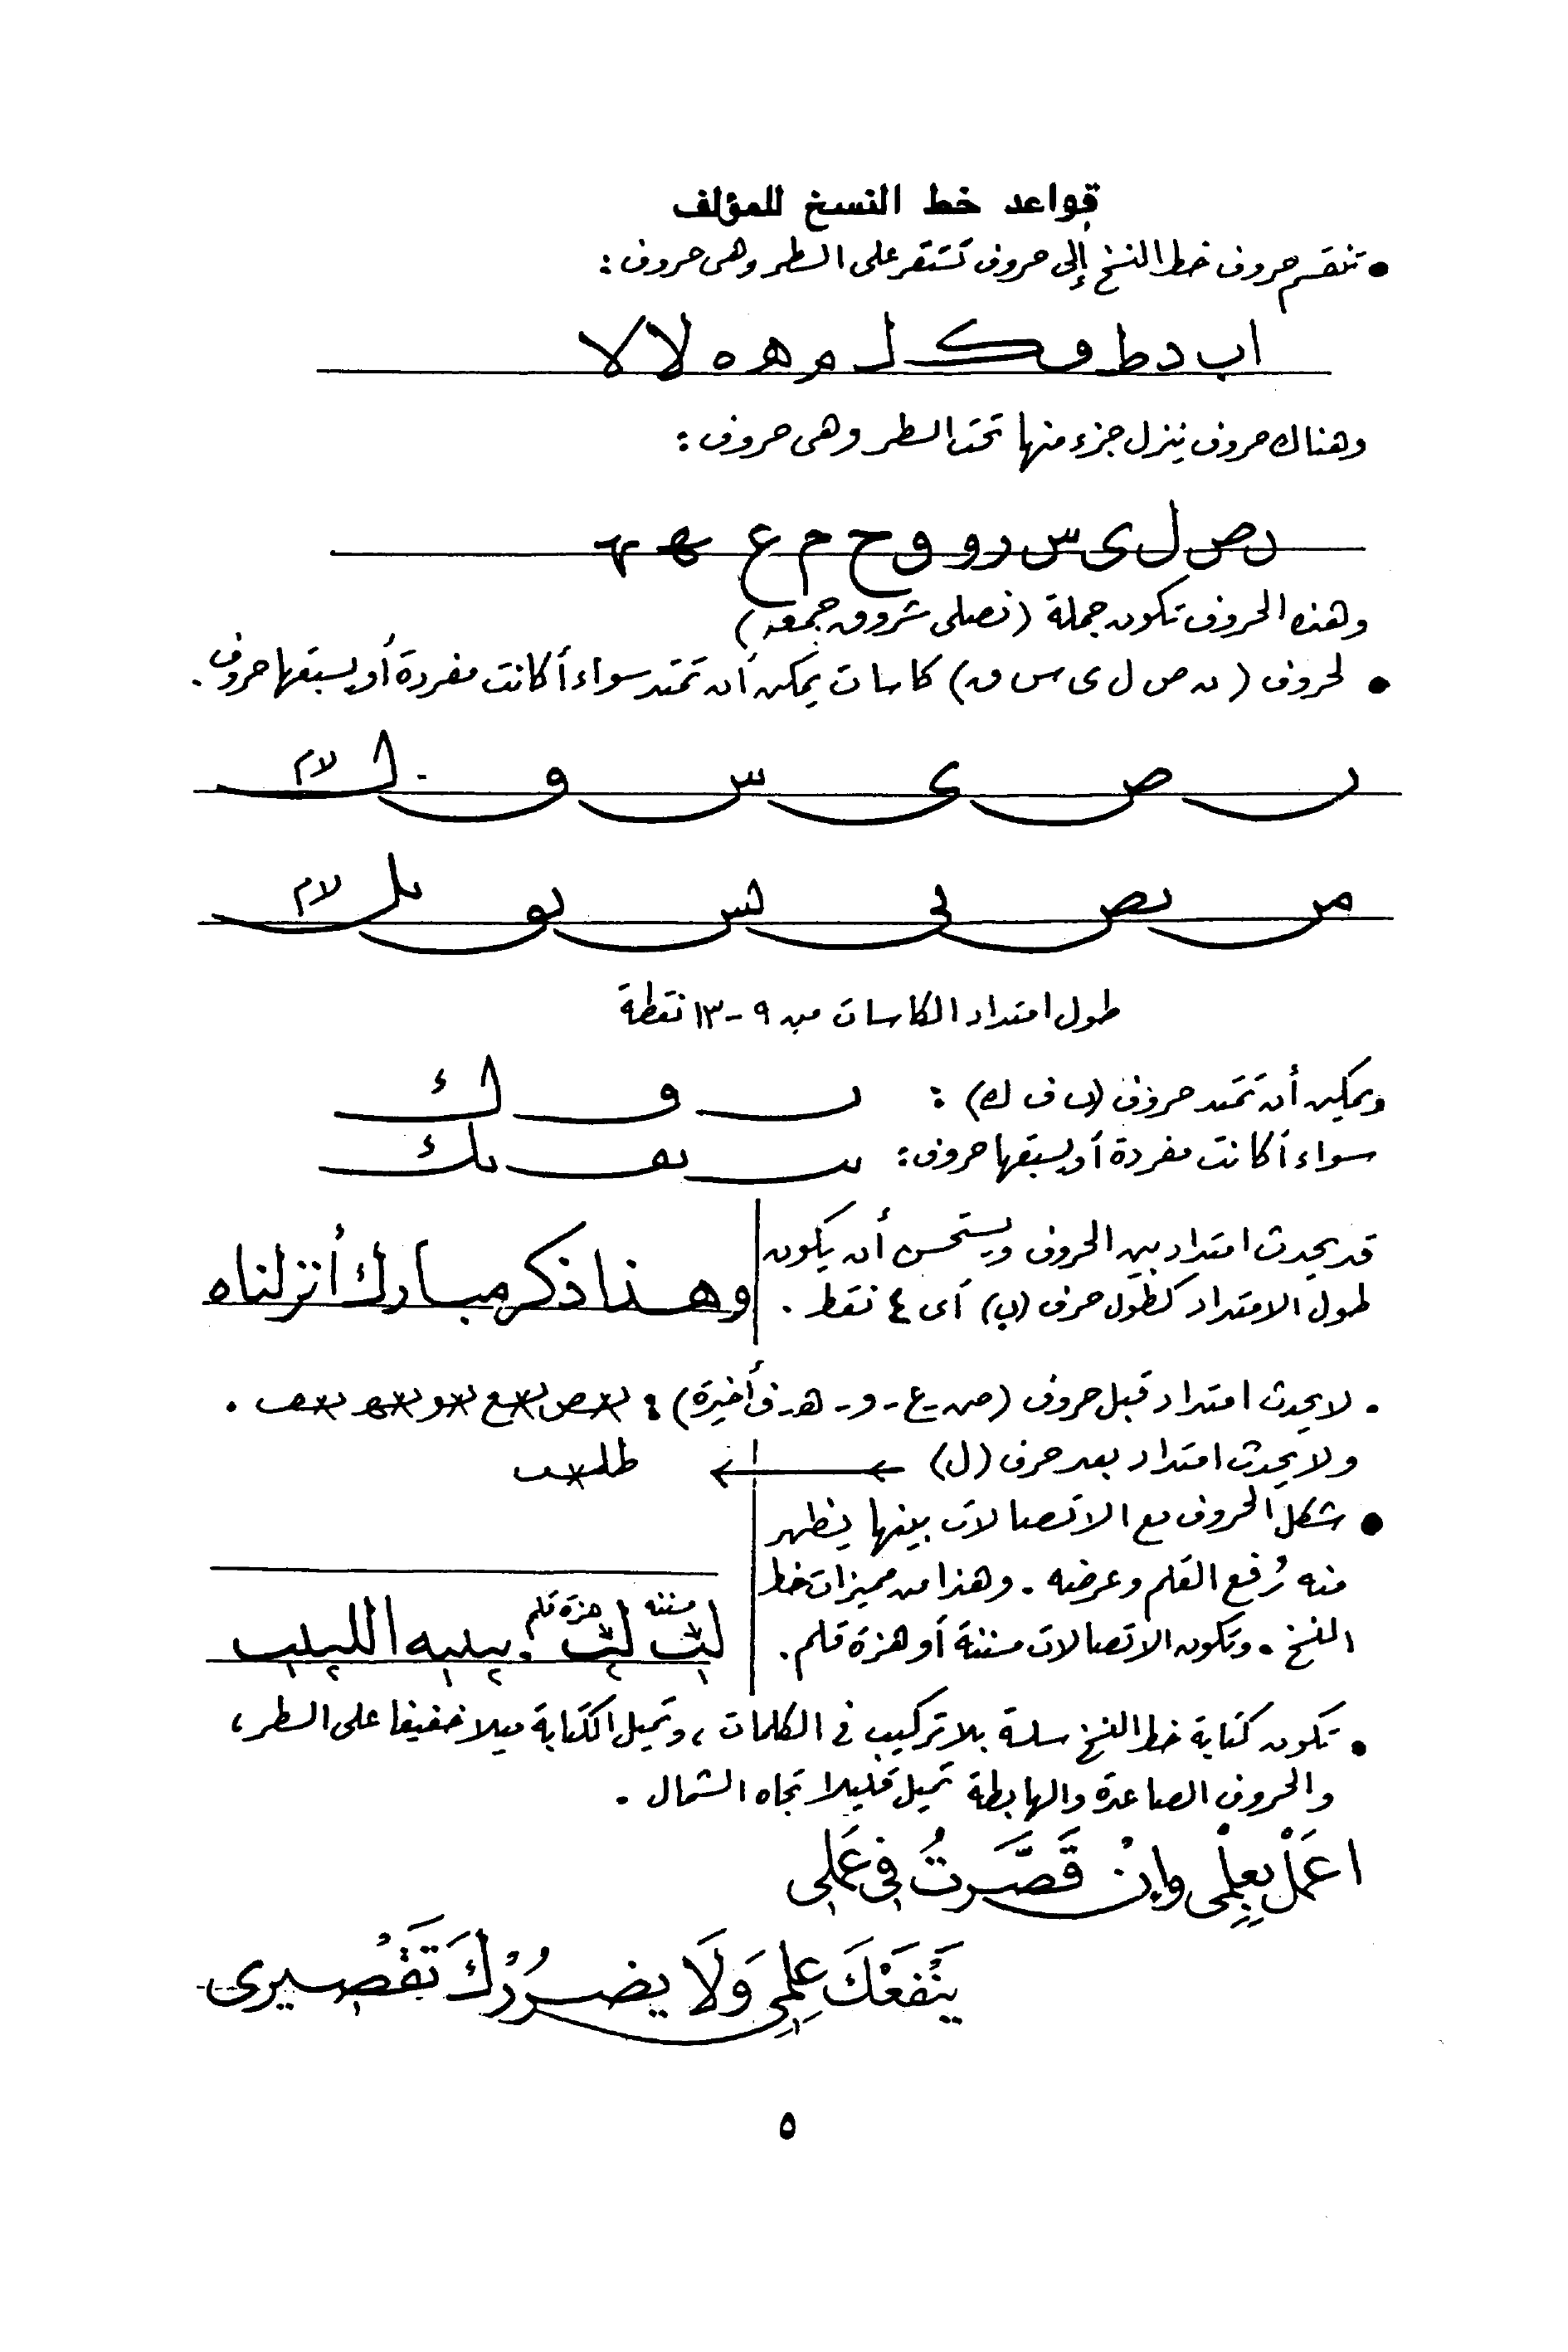 قواعد خط النسخ للمؤلف
• تنقسم حروف خط النسخ إلى حروف تستقر على السطر وهى حروف :
ا ب د ط ف ك ل م ه ه لا لا
وهناك حروف ينزل جزء منها تحت السطر وهى حروف :
ن ص ل ى س ر و ق ح م ع ه ه
وهذه الحروف تكون جملة (نصلى شروق جمعه)
• لحروف (ن ص ل ى س ق) كاسات يمكن أن تمتد سواء أكانت مفردة أو يسبقها حروف .
ن ص ى س ق . ل لام
من بص لى لس بق بل لام
طول امتداد الكاسات من ٩ - ١٣ نقطة
ويمكن أن تمتد حروف (ب ف ك) : ب ف ك
سواء أكانت مفردة أو يسبقها حروف : بب بف بك
قد يحدث امتداد بين الحروف ويستحسن أن يكون
طول الامتداد كطول حرف (ب) أى ٤ نقط .
وهذا ذكر مبارك أنزلناه
• لا يحدث امتداد قبل حروف (ص - ع - و - هـ - ف أخيرة) : بص بع بو بهـ بف .
ولا يحدث امتداد بعد حرف (ل) طلب
• شكل الحروف مع الاتصالات بينها يظهر
منه رُفع القلم وعرضه . وهذا من مميزات خط
النسخ . وتكون الاتصالات مسننة أو هزة قلم .
مسننه هزة قلم
لبث لبث . ببيبه اللبيب
• تكون كتابة خط النسخ سلسة بلا تركيب فى الكلمات ، وتميل الكتابة ميلا خفيفا على السطر ،
والحروف الصاعدة والهابطة تميل قليلا تجاه الشمال .
اعمَلْ بعِلْمِى وإنْ قَصَّرتُ فى عَمَلِى
يَنْفَعْكَ عِلمِى وَلَا يضرُرْكَ تَقْصِيرى
٥